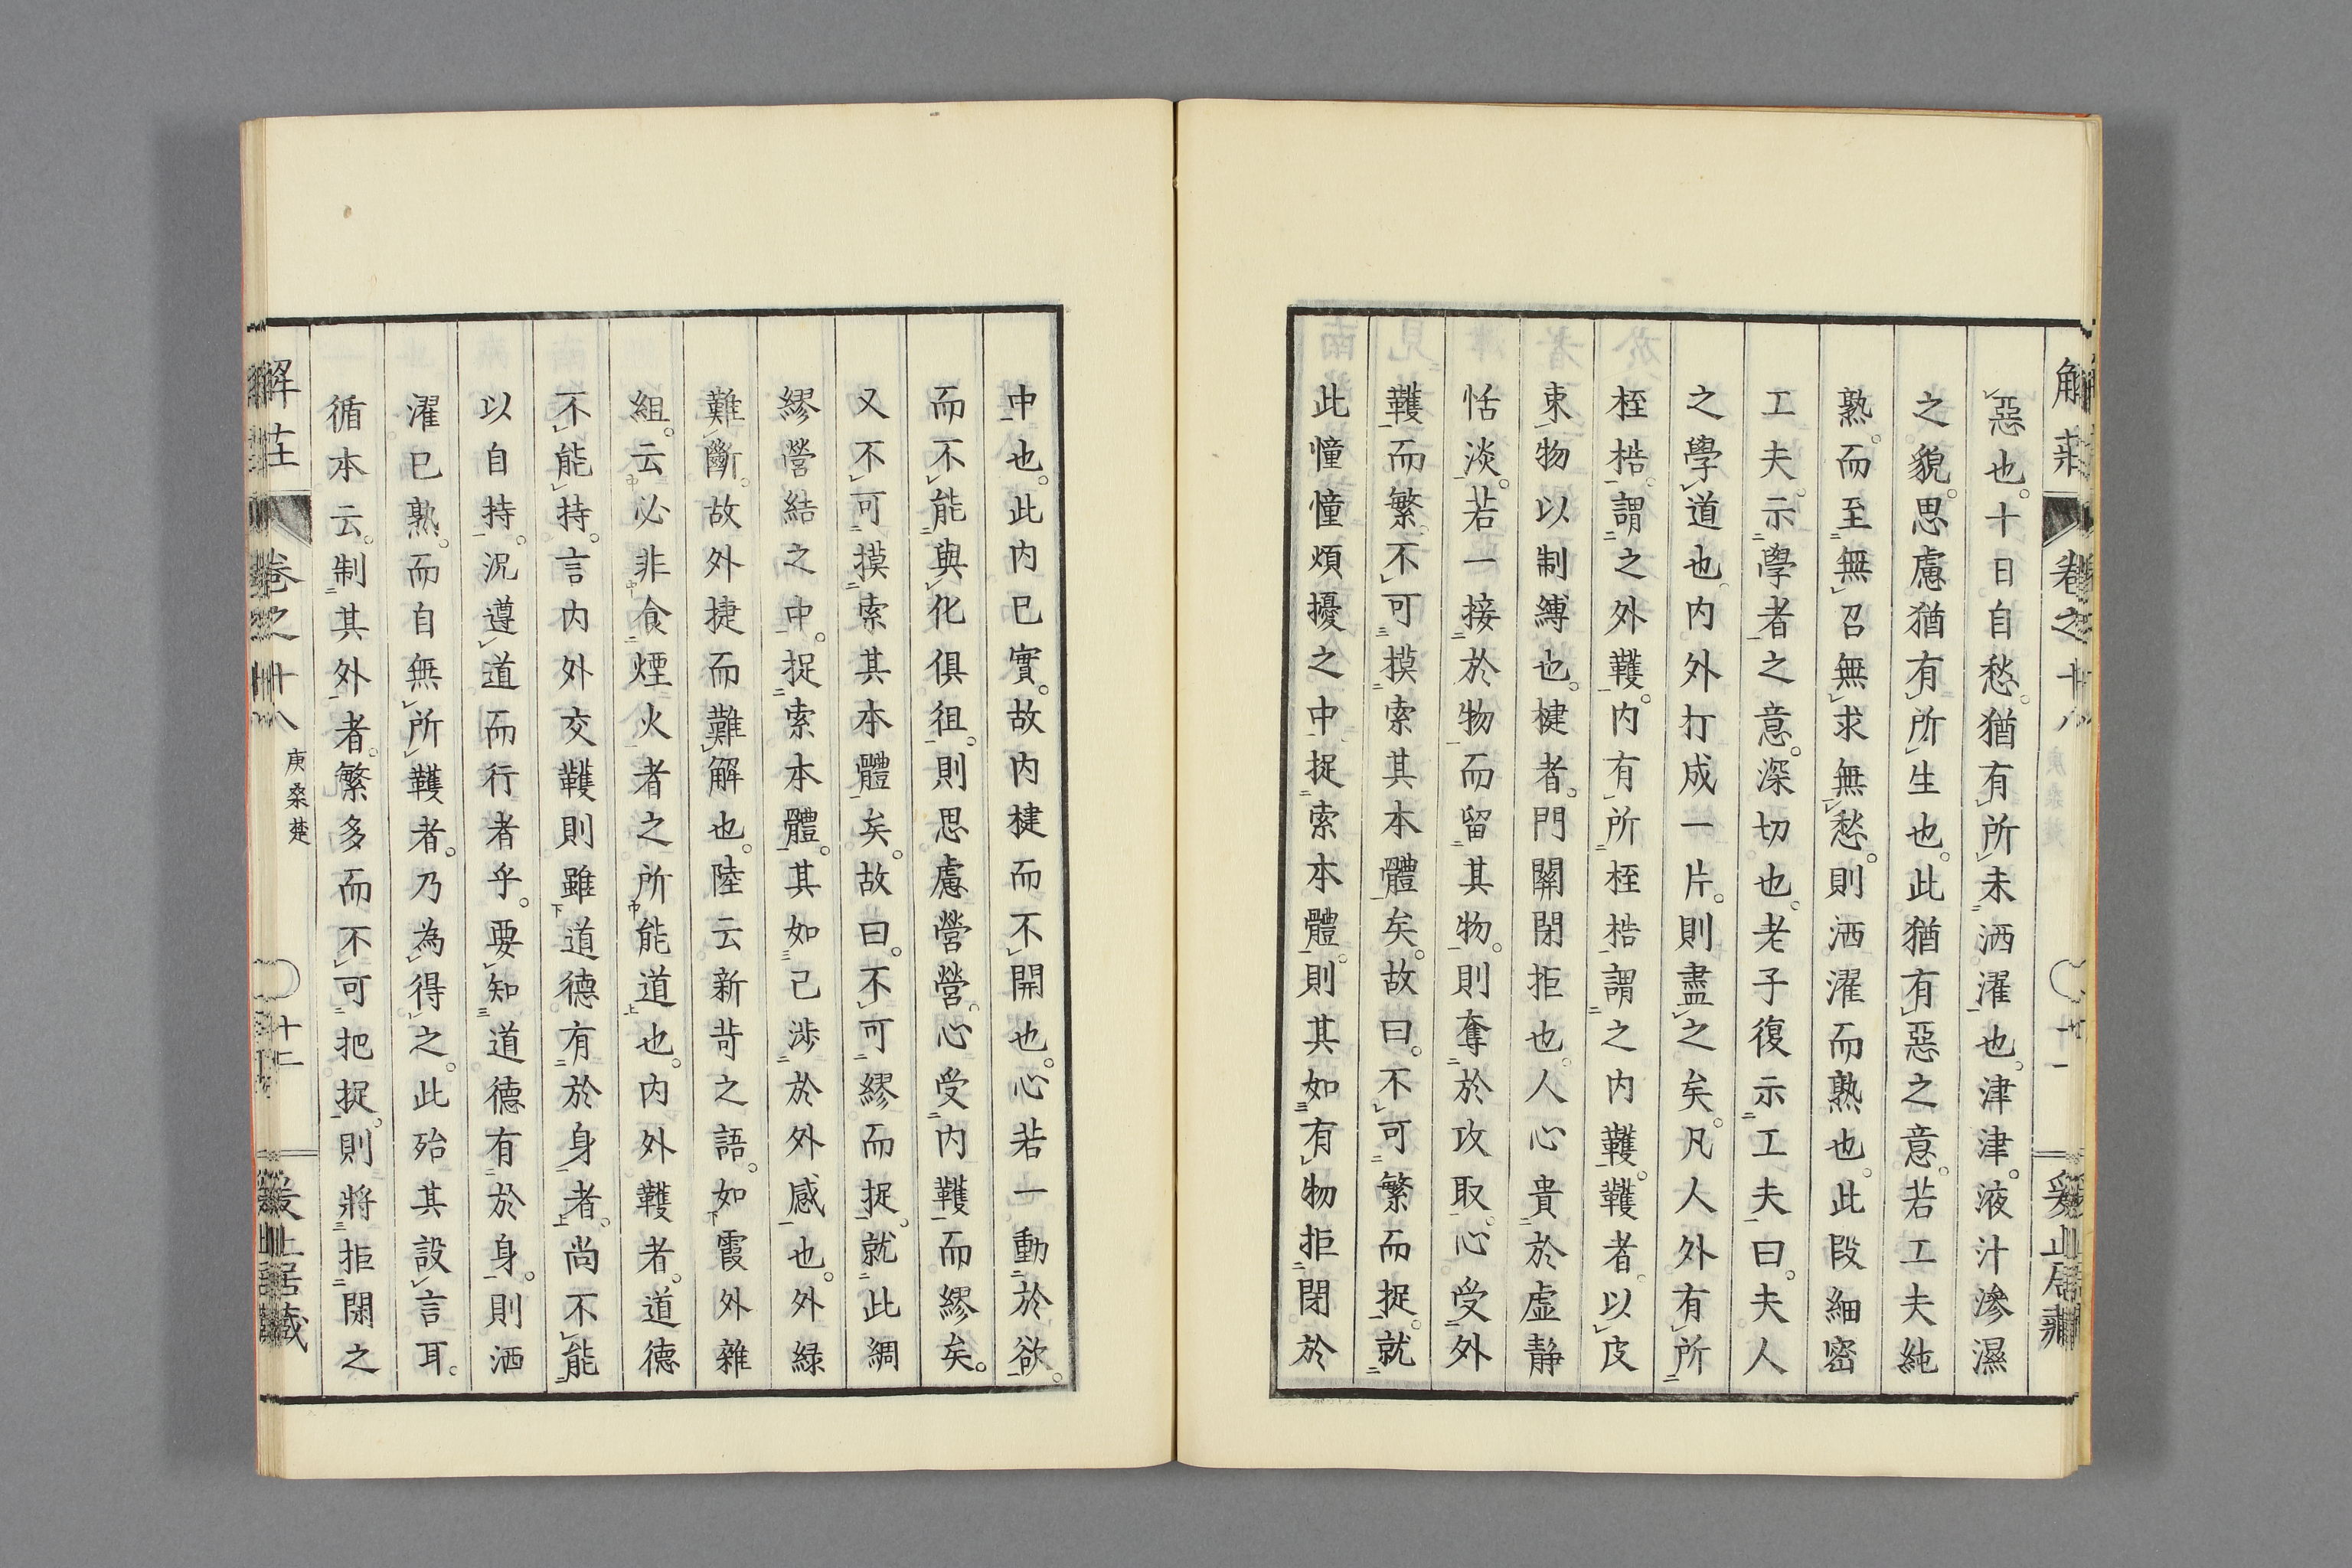 解莊 卷之十八 庚桑楚 十一
惡也。十日自愁。猶有所未洒濯也。津津。液汁滲濕
之貌。思慮猶有所生也。此猶有惡之意。若工夫純
熟。而至無召無求無愁。則洒濯而熟也。此段細密
工夫。示學者之意。深切也。老子復示工夫曰。夫人
之學道也。内外打成一片。則盡之矣。凡人外有所
桎梏。謂之外韄。内有所桎梏謂之内韄。韄者。以皮
束物以制縛也。楗者。門闗閉拒也。人心貴於虚静
恬淡。若一接於物而留其物。則奪於攻取。心受外
韄而繁。不可摸索其本體矣。故曰。不可繁而捉。就
此憧憧煩擾之中捉索本體。則其如有物拒閉於
中也。此内已實。故内楗而不開也。心若一動於欲。
而不能與化俱徂。則思慮營營。心受内韄而繆矣。
又不可摸索其本體矣。故曰。不可繆而捉。就此綢
繆營結之中。捉索本體。其如己涉於外感也。外緑
難斷。故外捷而難解也。陸云新苛之語。如霞外雜
組。云必非食煙火者之所能道也。内外韄者。道德
不能持。言内外交韄則雖道德有於身者。尚不能
以自持。況遵道而行者乎。要知道德有於身。則洒
濯已熟。而自無所韄者。乃為得之。此殆其設言耳。
循本云。制其外者。繁多而不可把捉。則將拒閉之
解莊 卷之十八 庚桑楚 十二